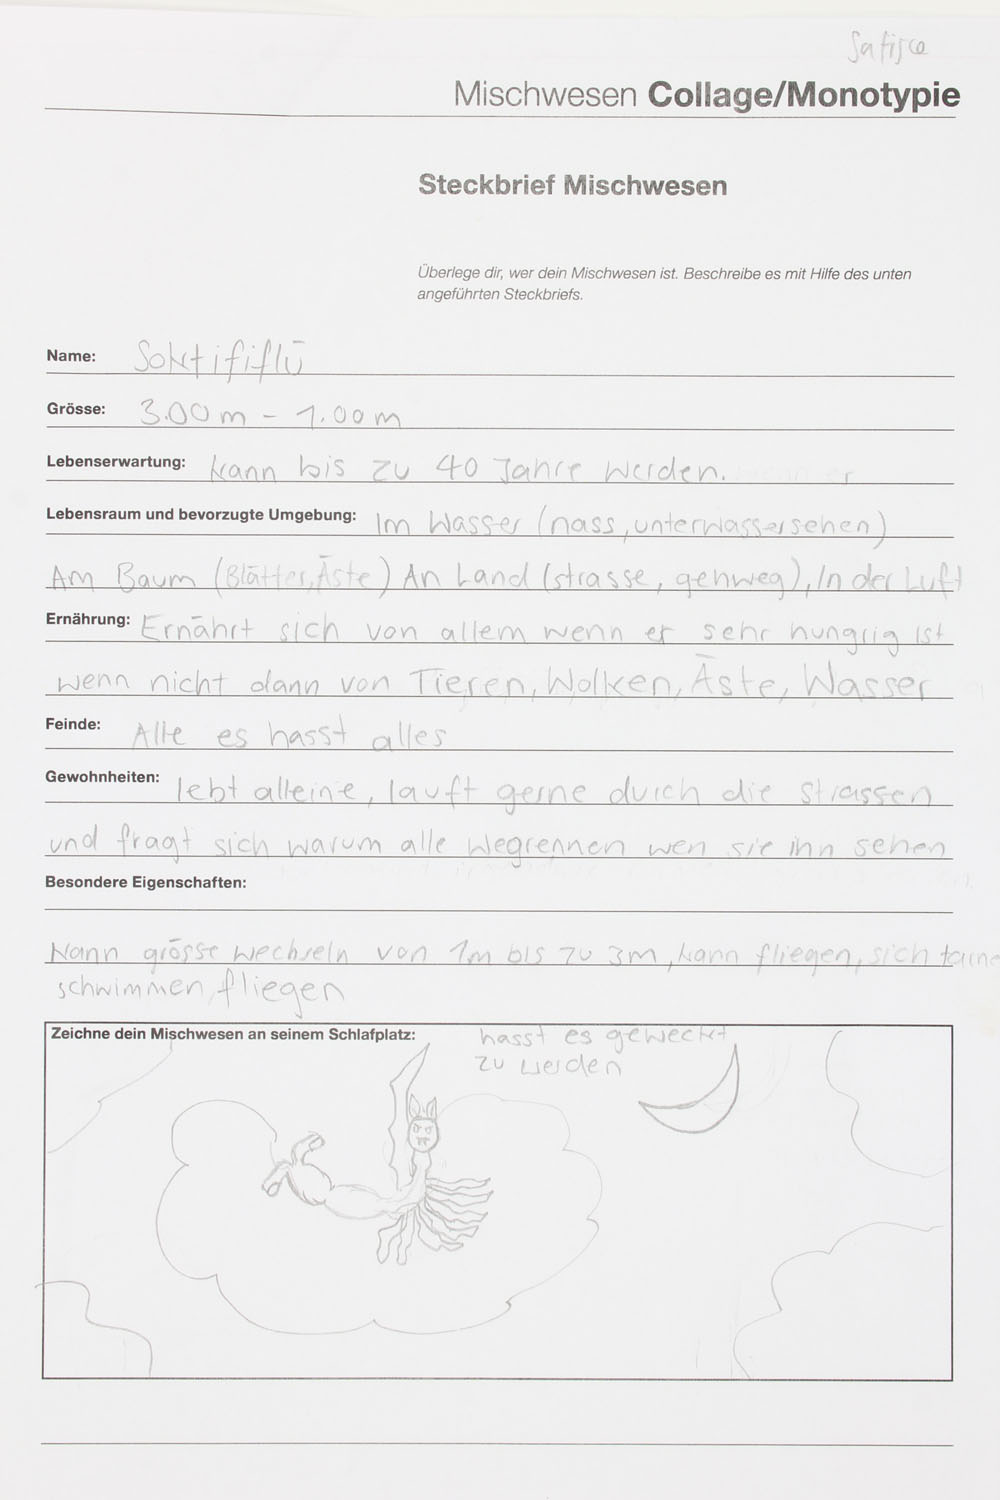 Mischwesen Collage/Monotypie
Steckbrief Mischwesen
Überlege dir, wer dein Mischwesen ist. Beschreibe es mit Hilfe des unten
angeführten Steckbriefs.
Name: Soktififlü
Grösse: 3.00m - 1.00m
Lebenserwartung: kann bis zu 40 Jahre werden.
Lebensraum und bevorzugte Umgebung: Im Wasser (nass, unterwassersehen)
Am Baum (Blätter, Äste) An Land (strasse, gehweg), In der Luft
Ernährung: Ernährt sich von allem wenn er sehr hungrig ist
wenn nicht dann von Tieren, Wolken, Äste, Wasser
Feinde: Alle es hasst alles
Gewohnheiten: lebt alleine, lauft gerne durch die strassen
und fragt sich warum alle wegrennen wen sie ihn sehen
Besondere Eigenschaften:
Kann grösse wechseln von 1m bis zu 3m, kann fliegen, sich tarne
schwimmen, fliegen
Zeichne dein Mischwesen an seinem Schlafplatz: hasst es geweckt
zu werden